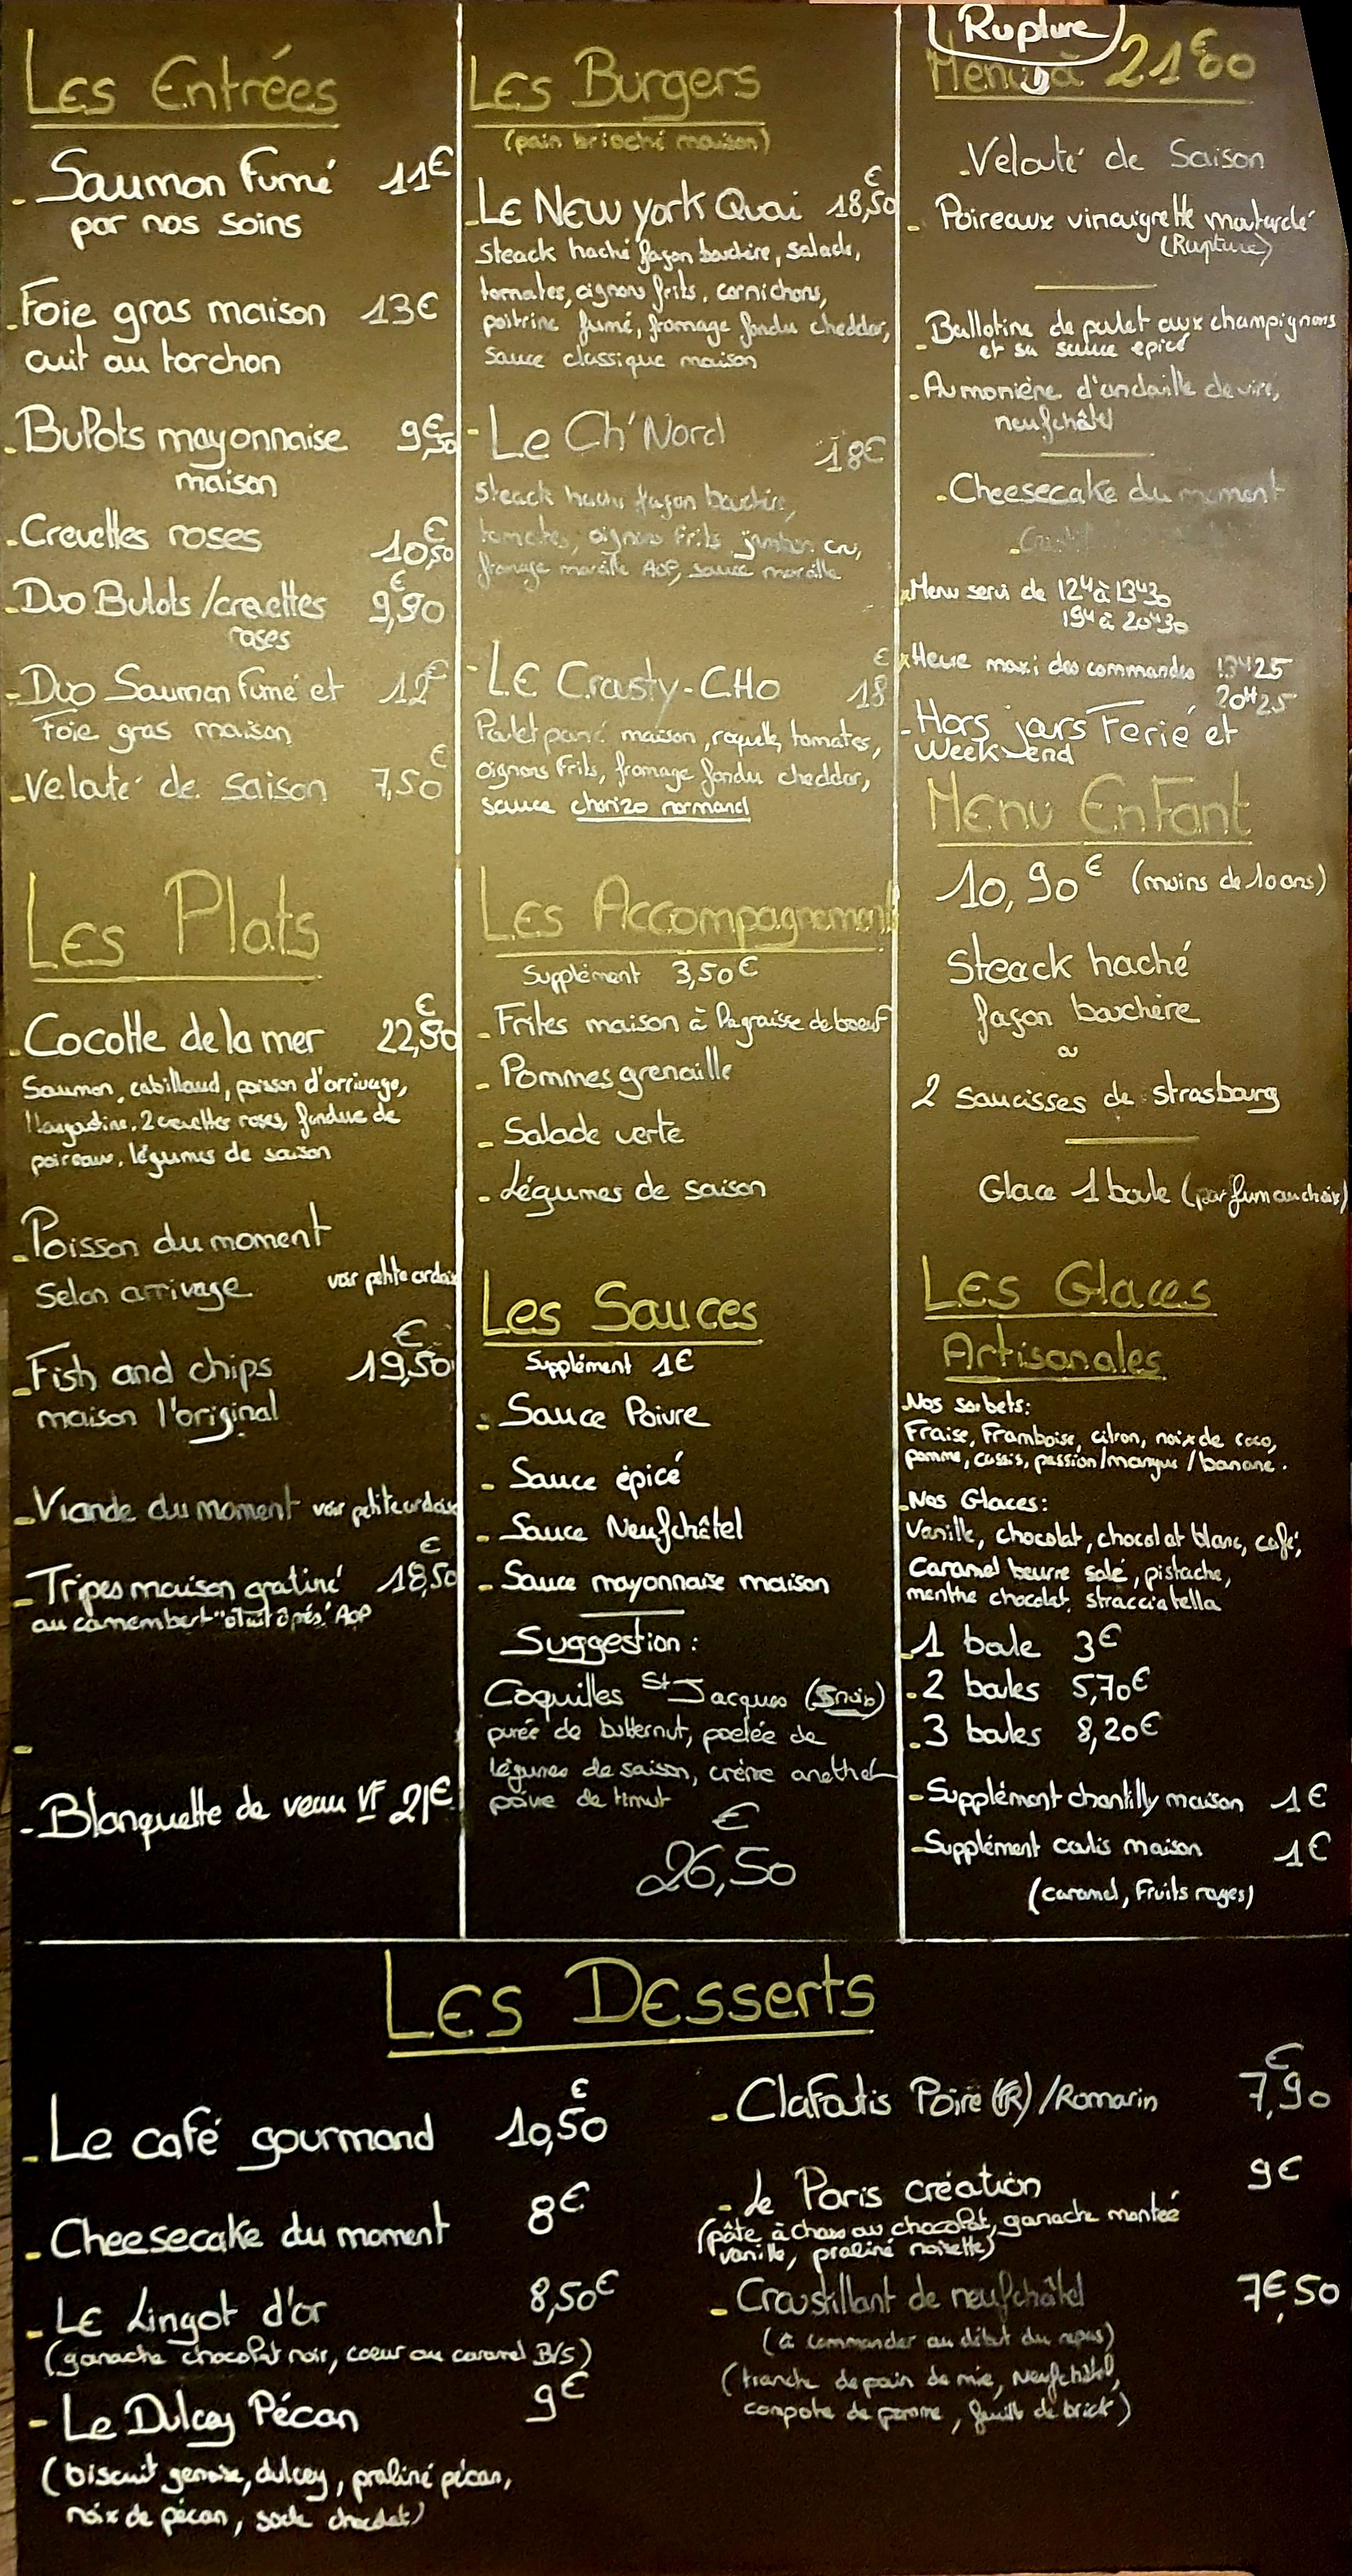 Les Entrées
- Saumon Fumé 11€
par nos soins
- Foie gras maison 13€
cuit au torchon
- Bulots mayonnaise 9€,50
maison
- Crevettes roses 10€,50
- Duo Bulots/crevettes 9€,90
roses
- Duo Saumon Fumé et 12€
Foie gras maison
- Velouté de saison 7,50€
Les Plats
- Cocotte de la mer 22,50€
Saumon, cabillaud, poisson d'arrivage,
1 langoustine, 2 crevettes roses, fondue de
poireaux, légumes de saison
- Poisson du moment
Selon arrivage voir petite ardoise
- Fish and chips 19,50€
maison l'original
- Viande du moment voir petite ardoise
- Tripes maison gratiné 18,50€
au camembert AOP
-
- Blanquette de veau VF 21€
Les Burgers
(pain brioché maison)
- Le New york Quai 18,50€
Steack haché façon bouchère, salade,
tomates, oignons frits, cornichons,
poitrine fumé, fromage fondu cheddar,
sauce classique maison
- Le Ch'Nord 18€
Steack haché façon bouchère,
tomates, oignons Frits jambon cru,
fromage maroille AOP, sauce maroille
- Le Crousty-CHo 18€
Poulet pané maison, roquette, tomates,
oignons Frits, fromage fondu cheddar,
sauce chorizo normand
Les Accompagnements
Supplément 3,50€
- Frites maison à la graisse de boeuf
- Pommes grenaille
- Salade verte
- Légumes de saison
Les Sauces
Supplément 1€
- Sauce Poivre
- Sauce épicé
- Sauce Neufchâtel
- Sauce mayonnaise maison
Suggestion :
Coquilles St Jacques (5 noix)
purée de butternut, poelée de
légumes de saison, crème aneth et
poivre de timut
26,50€
Rupture
Menu à 21€80
- Velouté de Saison
- Poireaux vinaigrette moutardé
(Rupture)
- Ballotine de poulet aux champignons
et sa sauce épicé
- Aumonière d'andouille de vire,
neufchâtel
- Cheesecake du moment
* Menu servi de 12H à 13H30
19H à 20H30
* Heure maxi des commandes 13H25
20H25
- Hors jours Ferié et
Week-end
Menu EnFant
10,90€ (moins de 10 ans)
Steack haché
façon bouchère
ou
2 saucisses de strasbourg
Glace 1 boule (parfum au choix)
Les Glaces
Artisanales
- Nos sorbets:
Fraise, Framboise, citron, noix de coco,
pomme, cassis, passion/mangue/banane.
- Nos Glaces:
Vanille, chocolat, chocolat blanc, café,
Caramel beurre salé, pistache,
menthe chocolat, stracciatella
- 1 boule 3€
- 2 boules 5,70€
- 3 boules 8,20€
- Supplément chantilly maison 1€
- Supplément coulis maison 1€
(caramel, Fruits rouges)
Les Desserts
- Le café gourmand 10,50€
- Cheesecake du moment 8€
- Le Lingot d'or 8,50€
(ganache chocolat noir, coeur au caramel B/S)
- Le Dulcey Pécan 9€
(biscuit genoise, dulcey, praliné pécan,
noix de pécan, socle chocolat)
- Clafoutis Poire (FR) /Romarin 7,90€
- Le Paris création 9€
(pâte à choux au chocolat, ganache montée
vanille, praliné noisette)
- Croustillant de neufchâtel 7€,50
(à commander au début du repas)
(tranche de pain de mie, Neufchâtel,
compote de pomme, feuille de brick)